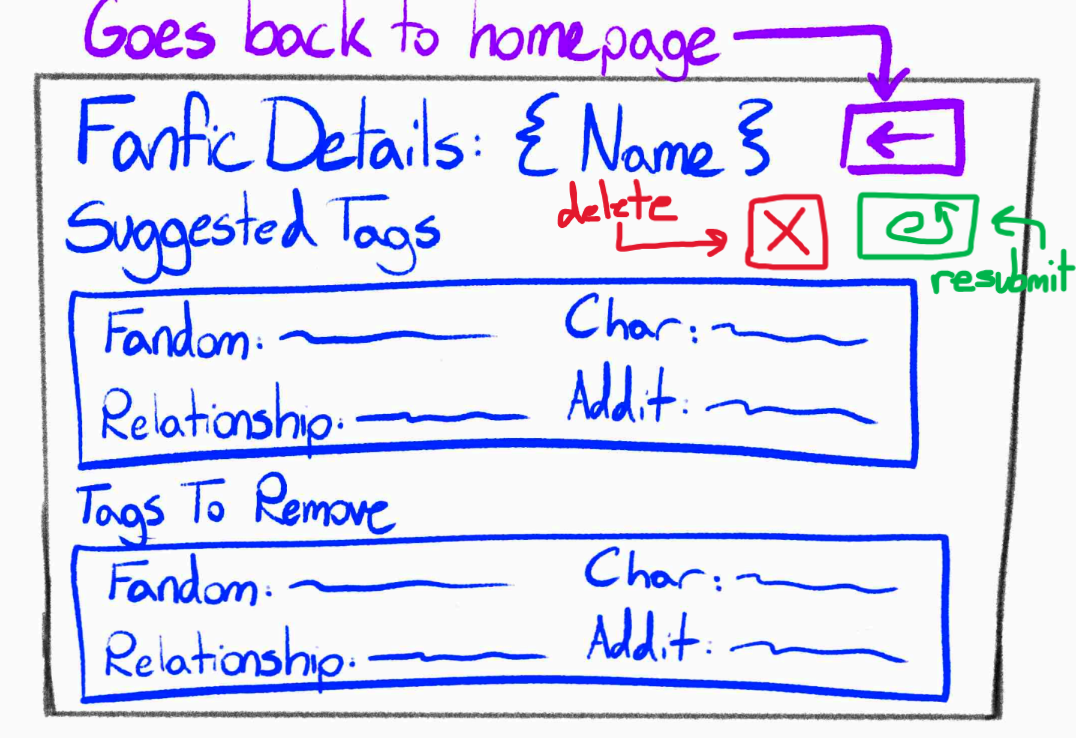 Goes back to homepage
Fanfic Details: { Name }
Suggested Tags
delete
resubmit
Fandom:
Char:
Relationship:
Addit:
Tags To Remove
Fandom:
Char:
Relationship:
Addit: